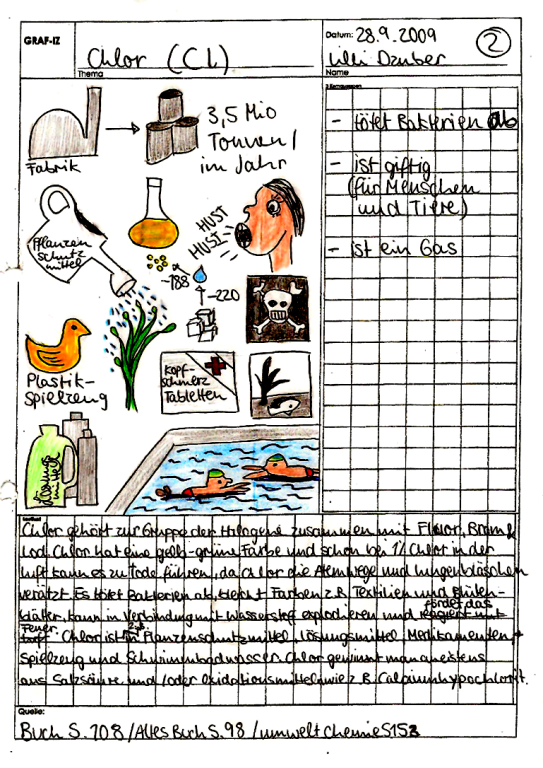 GRAF-IZ
Chlor (CL)
Thema
Datum: 28.9.2009
②
Lilli Dauber
Name
3,5 Mio
Tonnen/
im Jahr
Fabrik
Pflanzen
schutz
mittel
HUST
HUST
-188
-220
Plastik-
spielzeug
Kopf-
schmerz
Tabletten
Lösungs
mittel
- tötet Bakterien ab
- ist giftig
(für Menschen
und Tiere)
- ist ein Gas
Chlor gehört zur Gruppe der Halogene zusammen mit Fluor, Brom &
Iod. Chlor hat eine gelb-grüne Farbe und schon bei 1% Chlor in der
Luft kann es zu Tode führen, da Chlor die Atemwege und Lungenbläschen
verätzt. Es tötet Bakterien ab, bleicht Farben z.B. Textilien und Blüten-
blätter, kann in Verbindung mit Wasserstoff explodieren und fördet das
Feuer. Chlor ist in Pflanzenschutzmittel, Lösungsmittel, Medikamenten,
Spielzeug und Schwimmbadwasser. Chlor gewinnt man meistens
aus Salzsäure und/oder Oxidationsmittel wie z.B. Calciumhypochlorit.
Quelle:
Buch S. 108 / Altes Buch S. 98 / umwelt Chemie S 153